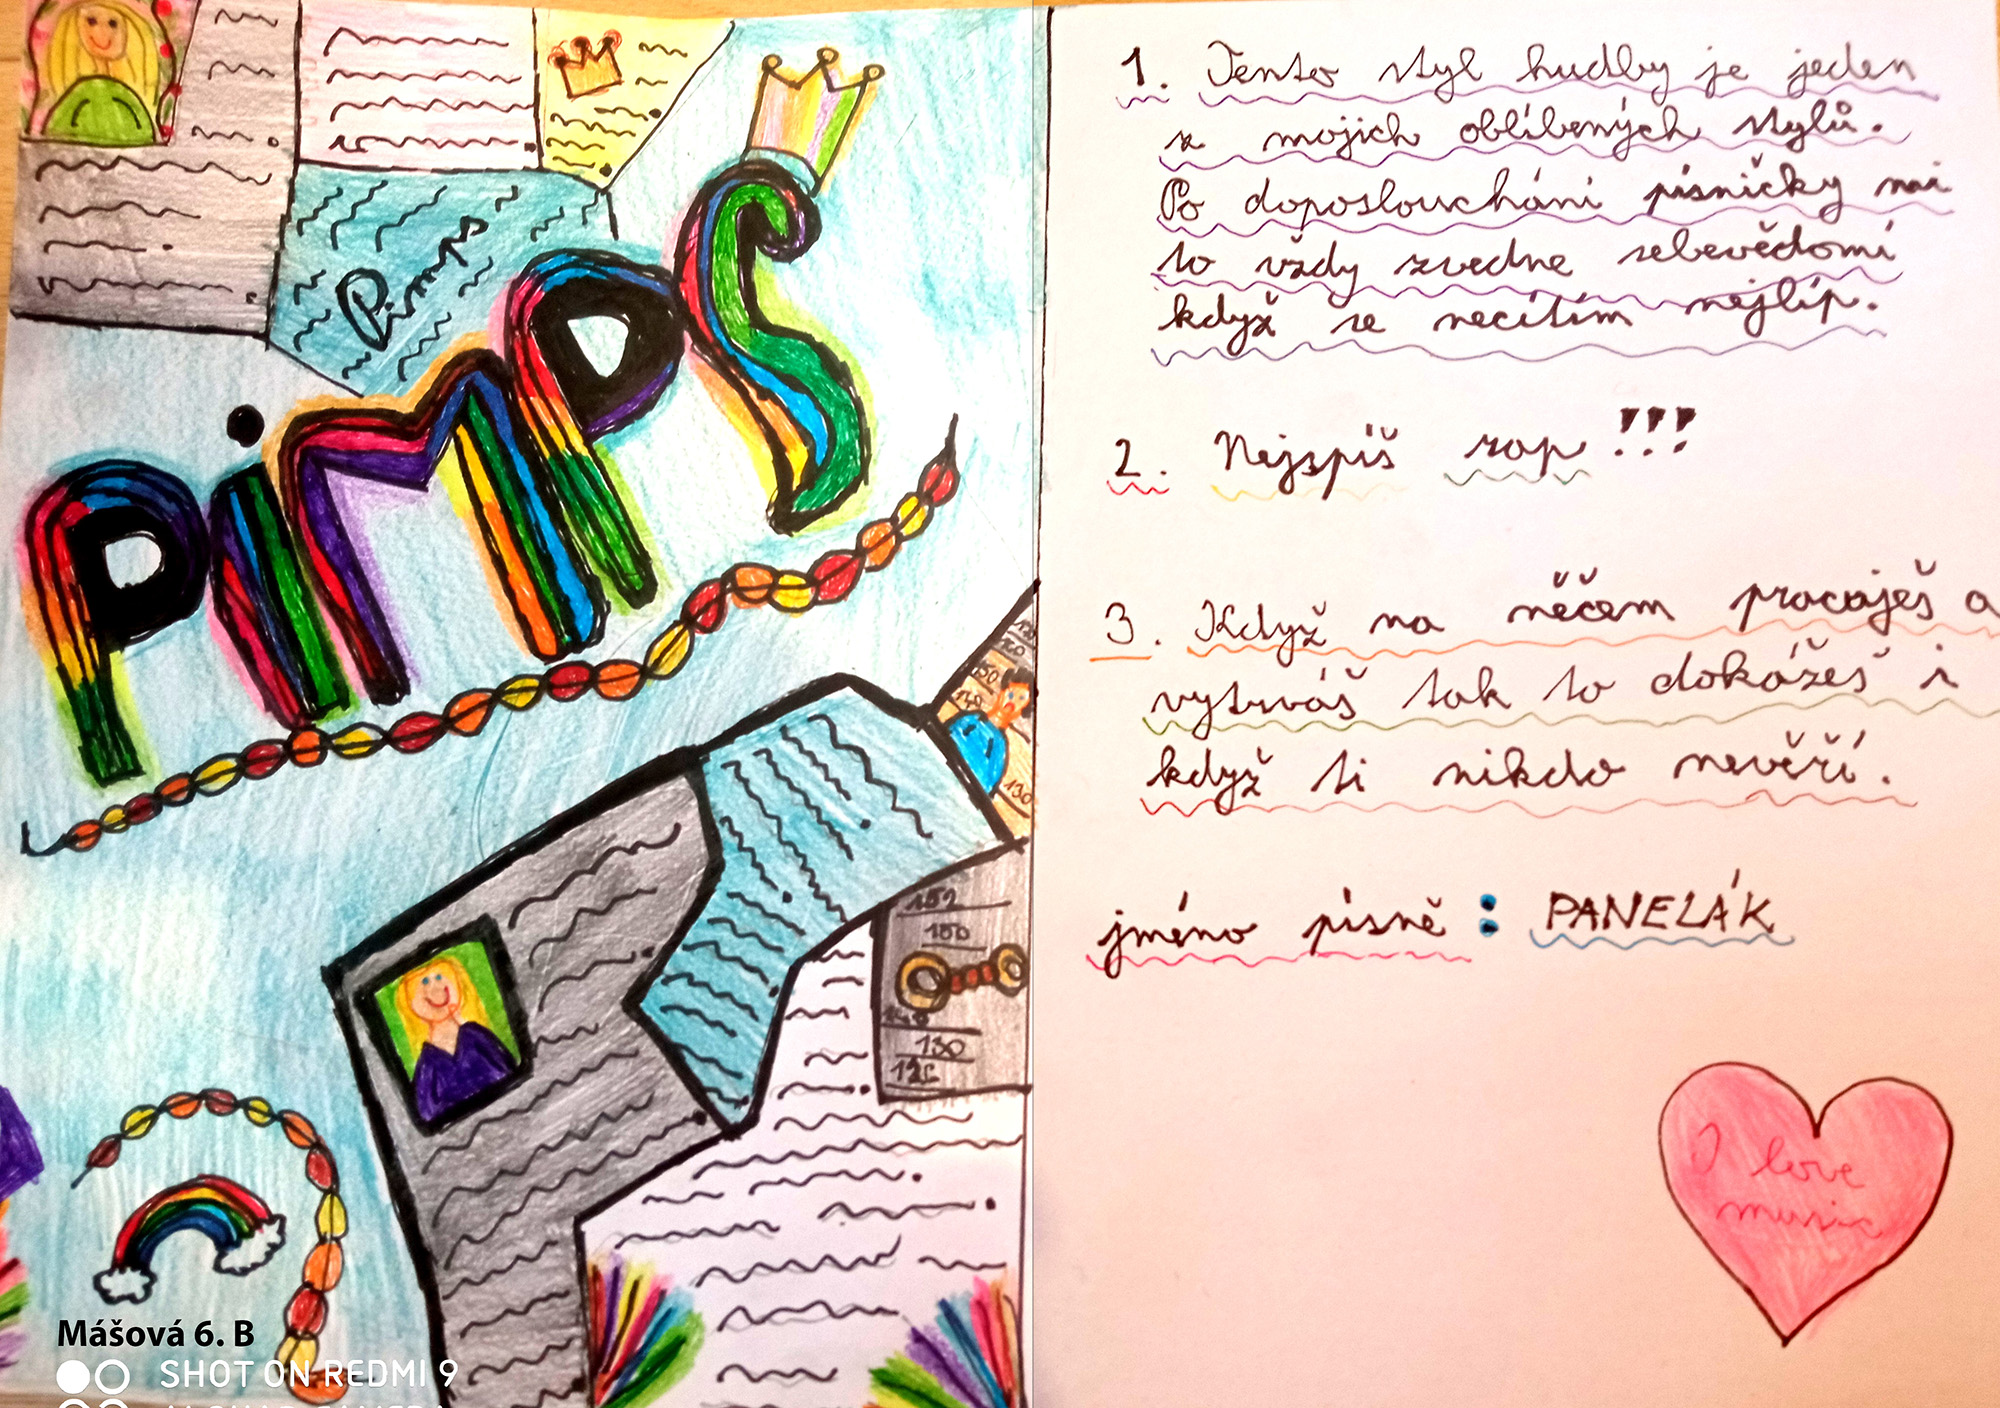 Pimps
PiMPS
150
140
130
152
150
140
130
Mášová 6. B
SHOT ON REDMI 9
1. Tento styl hudby je jeden
z mojich oblíbených stylů.
Po doposloucháni písničky mi
to vždy zvedne sebevědomí
když se necítím nejlíp.
2. Nejspíš rap !!!
3. Když na něčem pracaješ a
vytrváš tak to dokážeš i
když ti nikdo nevěří.
jméno písně : PANELÁK
I love
music